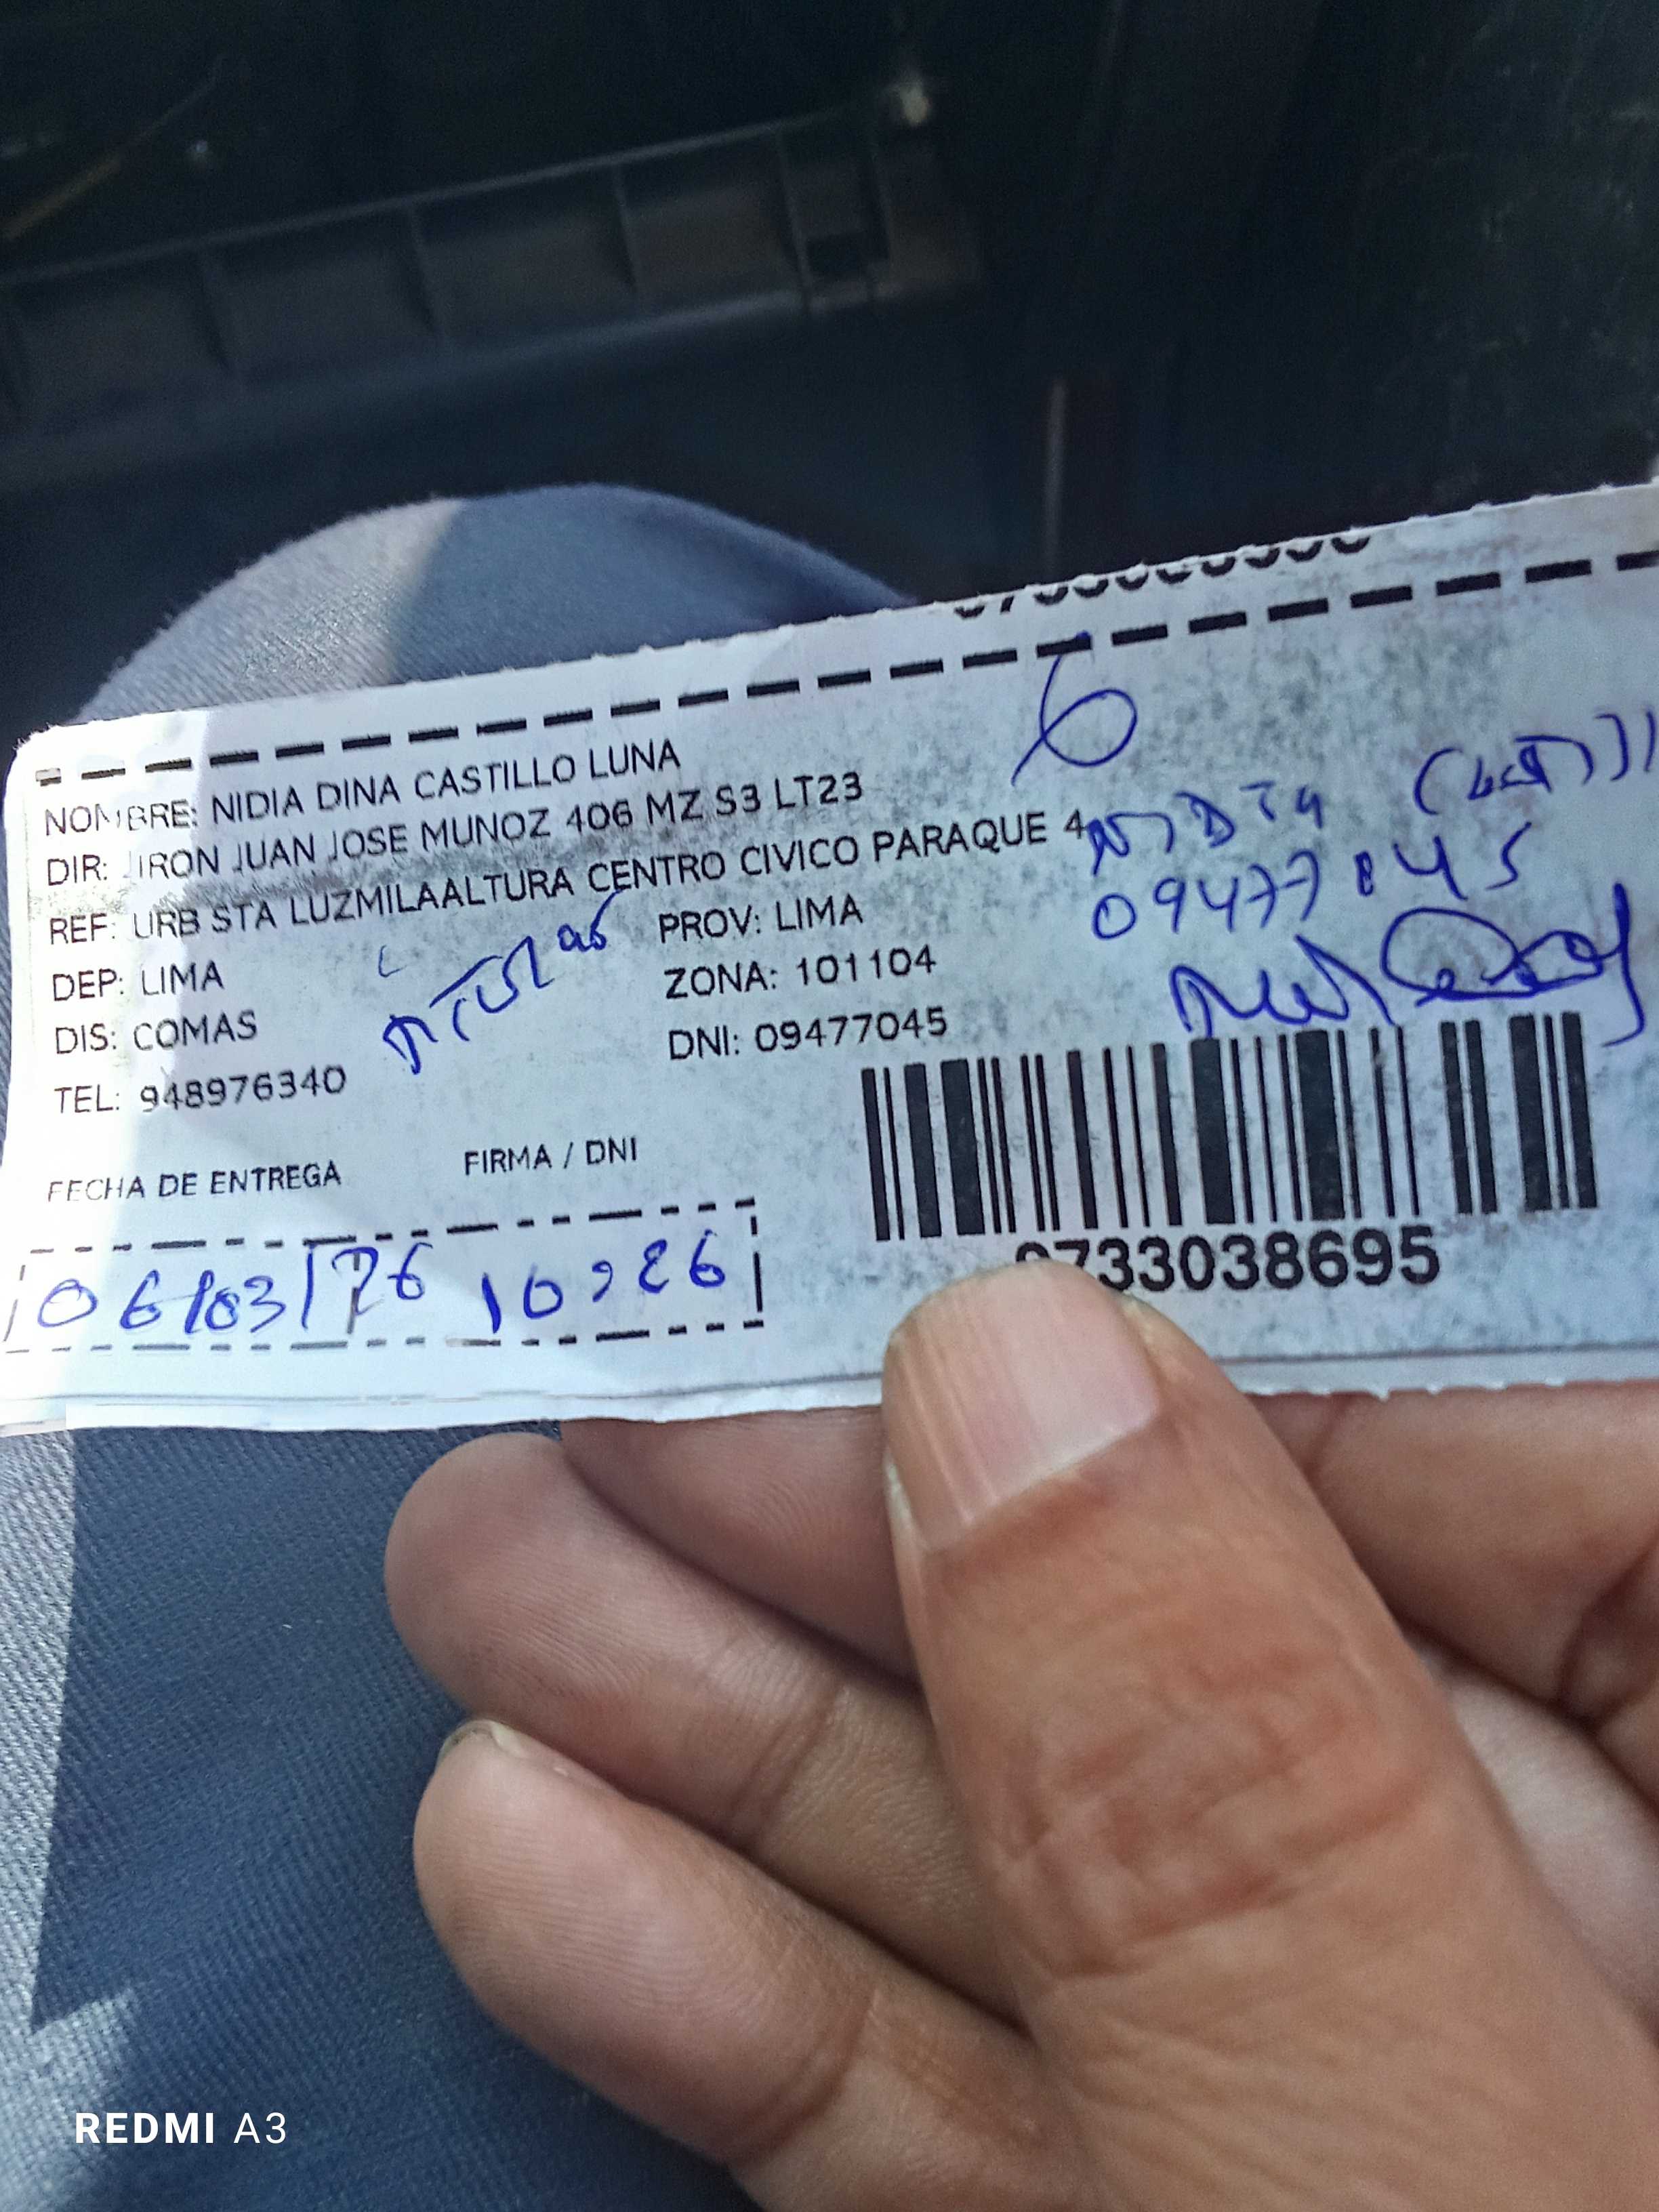 6
NOMBRE: NIDIA DINA CASTILLO LUNA
DIR: JIRON JUAN JOSE MUNOZ 406 MZ S3 LT23
REF: URB STA LUZMILAALTURA CENTRO CIVICO PARAQUE 4
DEP: LIMA
PROV: LIMA
DIS: COMAS
ZONA: 101104
TEL: 948976340
DNI: 09477045
NIDIA
09477045
FECHA DE ENTREGA
FIRMA / DNI
06/03/26 10:26
0733038695
REDMI A3